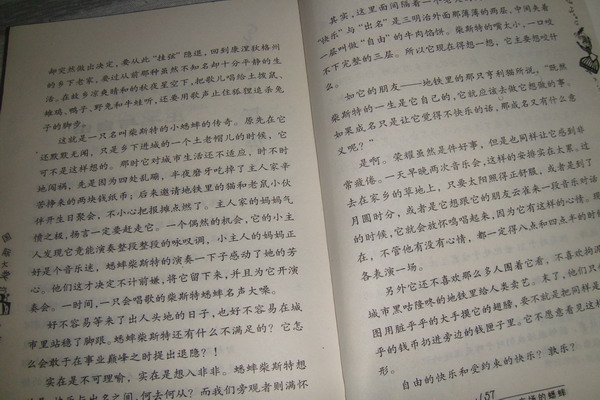 却突然做出决定，要从此“挂弦”隐退，回到康涅狄格州
的乡下老家，要过从前那种虽然不知名却十分平静的生
活。在故乡凉爽晴和的秋夜星空下，把歌儿唱给土拨鼠、
雉鸡、鸭子、野兔和牛蛙听，还要用歌声止住狐狸追杀兔
子的脚步。
这就是一只名叫柴斯特的小蟋蟀的传奇。原先在它
还默默无闻，只是乡下进城的一个土老帽儿的时候，它
可不是这样想的。那时它对城市生活还不适应，时不时
地闯祸，先是因为四处乱蹦，半夜磨牙吃掉了主人家辛
苦挣来的两块钱纸币；后来邀请地铁里的猫和老鼠小伙
伴开生日聚会，不小心把报摊点燃了。主人家的妈妈气
愤之极，扬言一定要赶走它。一个偶然的机会，它的小主
人发现它竟能演奏整段整段的咏叹调，小主人的妈妈正
好是个音乐迷，蟋蟀柴斯特的演奏一下子感动了她的芳
心。他们这才决定不计前嫌，将它留下来，并且为它开演
奏会。一时间，一只会唱歌的柴斯特蟋蟀名声大噪。
好不容易等来了出人头地的日子，也好不容易在城
市里站稳了脚跟。蟋蟀柴斯特还有什么不满足的？它怎
么会敢于在事业巅峰之时提出退隐？！
实在是不可理喻，实在是想入非非。蟋蟀柴斯特想
快乐与出名之间，何去何从？而我们旁观者则满怀
其实，这里面间隔着一个
“快乐”与“出名”是三明治外面那薄薄的两层，中间夹着
一层叫做“自由”的牛肉馅饼。柴斯特的嘴太小，一口咬
不下完整的三层。所以它现在得想一想，它主要想咬什
么。
如它的朋友——地铁里的那只亨利猫所说，“既然
柴斯特的一生是它自己的，它就应该去做它想做的事。
如果成名只是让它觉得不快乐的话，那成名又有什么意
义呢？”
是啊。荣耀虽然是件好事，但是也同样让它感到非
常疲倦。一天早晚两次音乐会，这样的安排实在太累。过
去在家乡的草地上，只要太阳照得正舒服，或者是到了
月圆时分，或者是它想跟它的朋友云雀来一段音乐对话
的时候，它就会放怀鸣唱起来，因为它有这样的心情。现
在，不管他有没有心情，都一定得八点和四点半的时
各表演一场。
另外它还不喜欢那么多人围着它看，不喜欢
城市黑咕隆咚的地铁里给人卖艺。末了，他们
图用脏乎乎的大手摸它的翅膀，要不就是把同样
乎的钱币扔进旁边的钱匣子里。它不愿意看见这
形。
自由的快乐和受约束的快乐？孰乐？
187
广场的蟋蟀